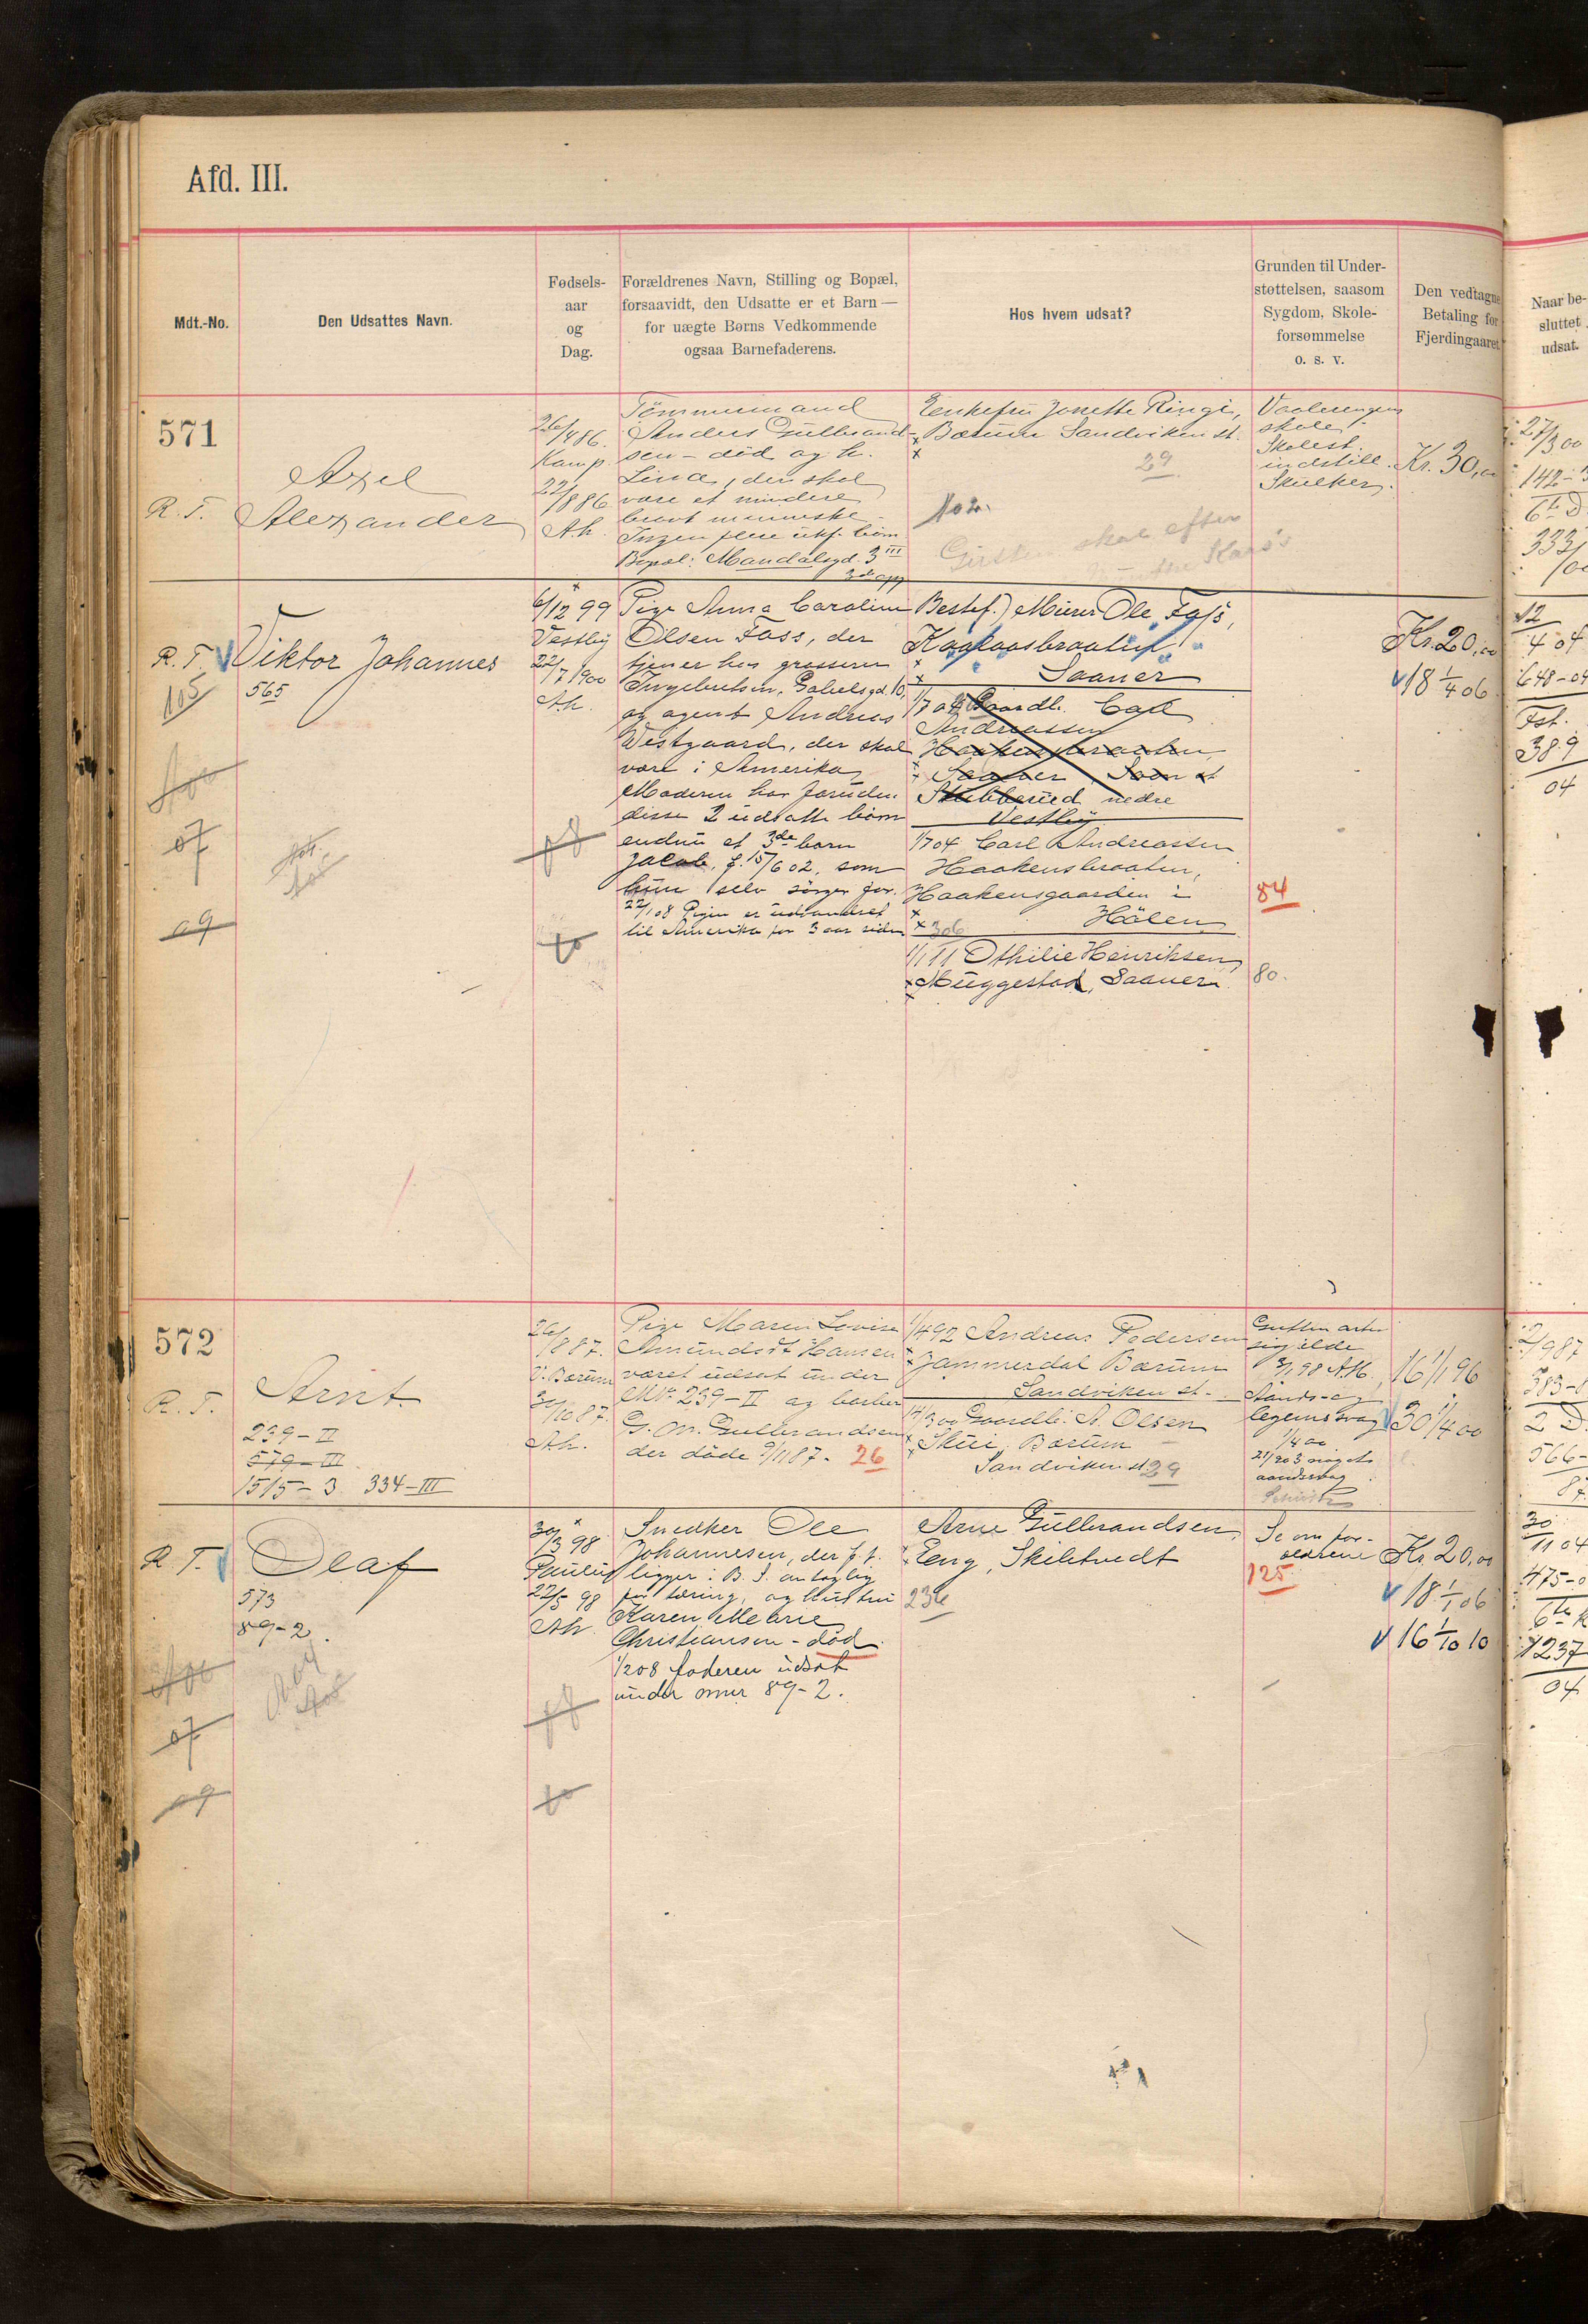 Afd. III.
Mdt.-No.
Den Udsattes Navn.
Fødsels-
aar
og
Dag.
Forældrenes Navn, Stilling og Bopæl,
forsaavidt, den Udsatte er et Barn —
for uægte Børns Vedkommende
ogsaa Barnefaderens.
Hos hvem udsat?
Grunden til Under-
støttelsen, saasom
Sygdom, Skole-
forsømmelse
o. s. v.
Den vedtagne
Betaling for
Fjerdingaaret
Naar be-
sluttet
udsat.
571
R. T.
Axel
Alexander
26/4 86.
Kamp.
22/8 86
A.h.
Tömmermand
Anders Gulbrand-
sen - död og h.
Lina, den skal
være et mindre
bravt menneske
Ingen flere ukf. börn
Bopæl: Mandalsgd. 3 III
3die opg
Enkefru Jonette Ringi,
Bærum Sandviken st.
29
No 2.
skal efter
Vaalerengens
skole.
Skolest.
indstill.
Skulker.
Kr. 30,00
27/3 00
142-
333/
R. T.
105
Viktor Johannes
565
6/12 99
Vestby
22/7 1900
A.h.
Pige Anna Caroline
Olsen Foss, der
tjener hos grosserer
Ingebretsen, Gabelsgd. 10,
og agent Andreas
Westgaard, der skal
være i Amerika
Moderen har foruden
disse 2 udsatte börn
endnu et 3de barn
Jacob, f. 15/6 02, som
hun selv sörger for.
22/1 08 Pigen er udvandret
til Amerika for 3 aar siden
Bestef.) Murer Ole Foss,
Saaner
1/7 04 Gaardbr. Carl
Andreassen
Haakensbraaten,
Saaner, Soon st
Stubberud nedre
Vestby
1/7 04 Carl Andreassen
Haakensbraaten,
Haakensgaarden i
Hölen
306
1/1 11 Othilie Henriksen,
Muggestad, Saaner
84
80.
Kr. 20,00
18 1/4 06
12
4 04
648-04
Fst.
389
04
07
09
572
R. T.
Arnt.
239-II
579-III
1515-3 334-III
26/8 87.
V. Bærum
30/10 87.
A.h.
Pige Maren Lovise
Amundsdt Hansen
været udsat under
No 239-II og barber
G. M. Gulbrandsen
der döde 9/11 87. 26
1/4 92 Andreas Pedersen
Jammerdal Bærum
Sandviken st.
14/3 00 Gaardbr. A. Olsen
Skui, Bærum
Sandviken st 29
Gutten arter
sig ilde
3/1 98 A.H.
Aands- og
legemssvag
1/4 00
21/2 03 noget
aandssvag
16 1/1 96
30 1/4 00
2/9 87
383-8
2 D.
566-
87
R. T.
Olaf
573
89-2.
30/3 98
Paulus
22/5 98
A.h.
Snedker Ole
Johannesen, der f. t.
ligger i B. S. antagelig
for tæring, og hustru
Karen Marie
Christiansen - död
1/2 08 faderen udsat
under nmr 89-2.
Arne Gulbrandsen,
Eng, Skiptvedt
236
Se om for-
ældrene
125
Kr. 20,00
18 1/1 06
16 1/10 10
30
11 04
475-0
237
04
07
09